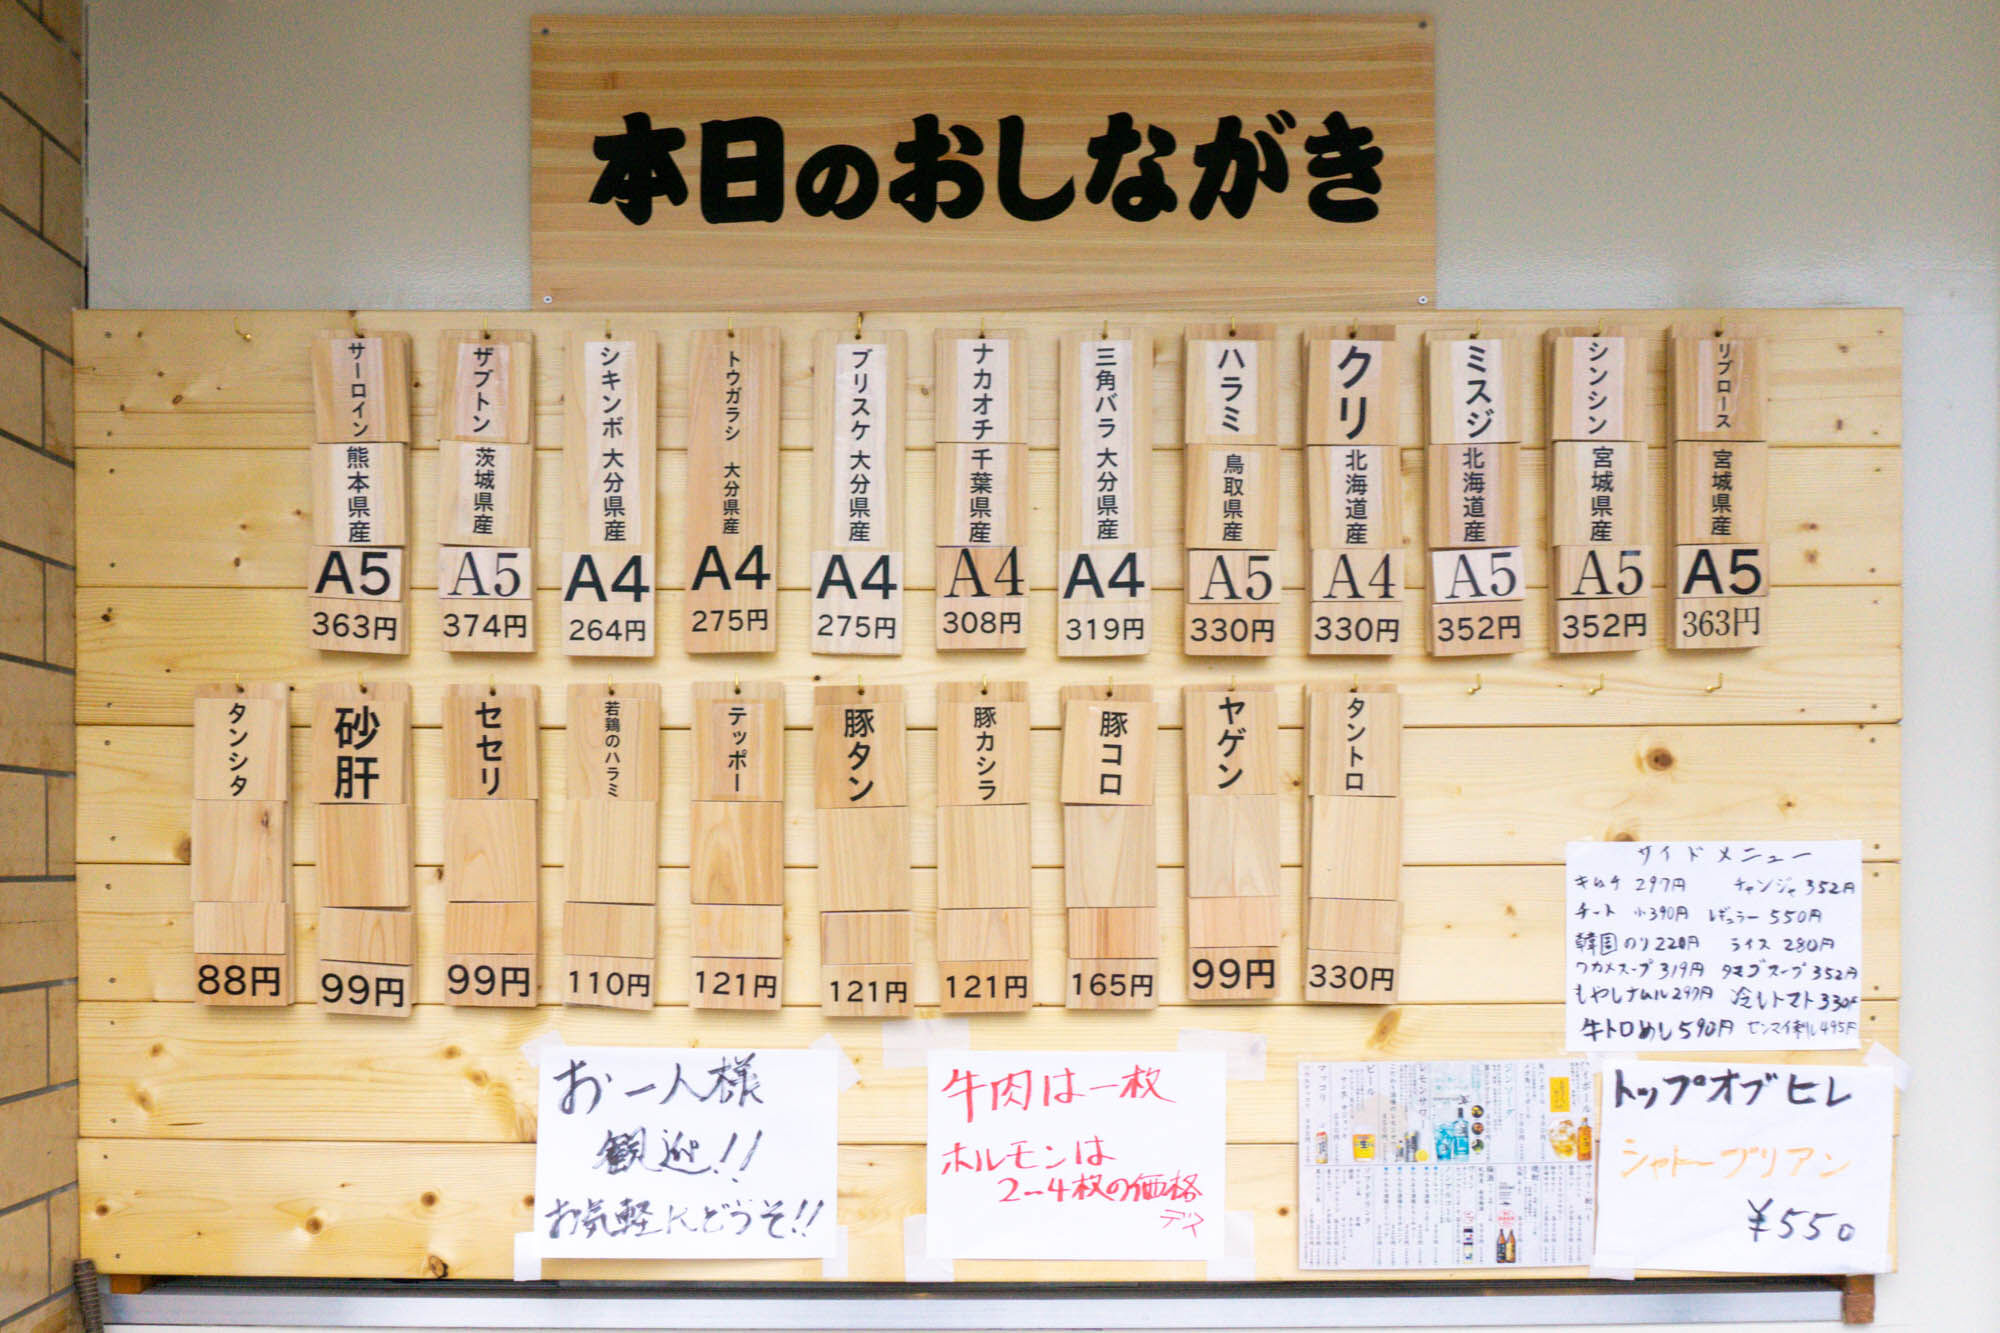 本日のおしながき
サーロイン 熊本県産 A5 363円
ザブトン 茨城県産 A5 374円
シキンボ 大分県産 A4 264円
トウガラシ 大分県産 A4 275円
ブリスケ 大分県産 A4 275円
ナカオチ 千葉県産 A4 308円
三角バラ 大分県産 A4 319円
ハラミ 鳥取県産 A5 330円
クリ 北海道産 A4 330円
ミスジ 北海道産 A5 352円
シンシン 宮城県産 A5 352円
リブロース 宮城県産 A5 363円
タンシタ 88円
砂肝 99円
セセリ 99円
若鶏のハラミ 110円
テッポー 121円
豚タン 121円
豚カシラ 121円
豚コロ 165円
ヤゲン 99円
タントロ 330円
サイドメニュー
キムチ 297円 チャンジャ 352円
チート 小390円 レギュラー 550円
韓国のり220円 ライス 280円
ワカメスープ 319円 タマゴスープ 352円
もやしナムル297円 冷しトマト330円
牛トロめし590円 センマイ刺し495円
お一人様
観迎!!
お気軽にどうぞ!!
牛肉は一枚
ホルモンは
2〜4枚の価格
デス
マッコリ
ビール
レモンサワー
ジンソーダ
ハイボール
トップオブヒレ
シャトーブリアン
¥550